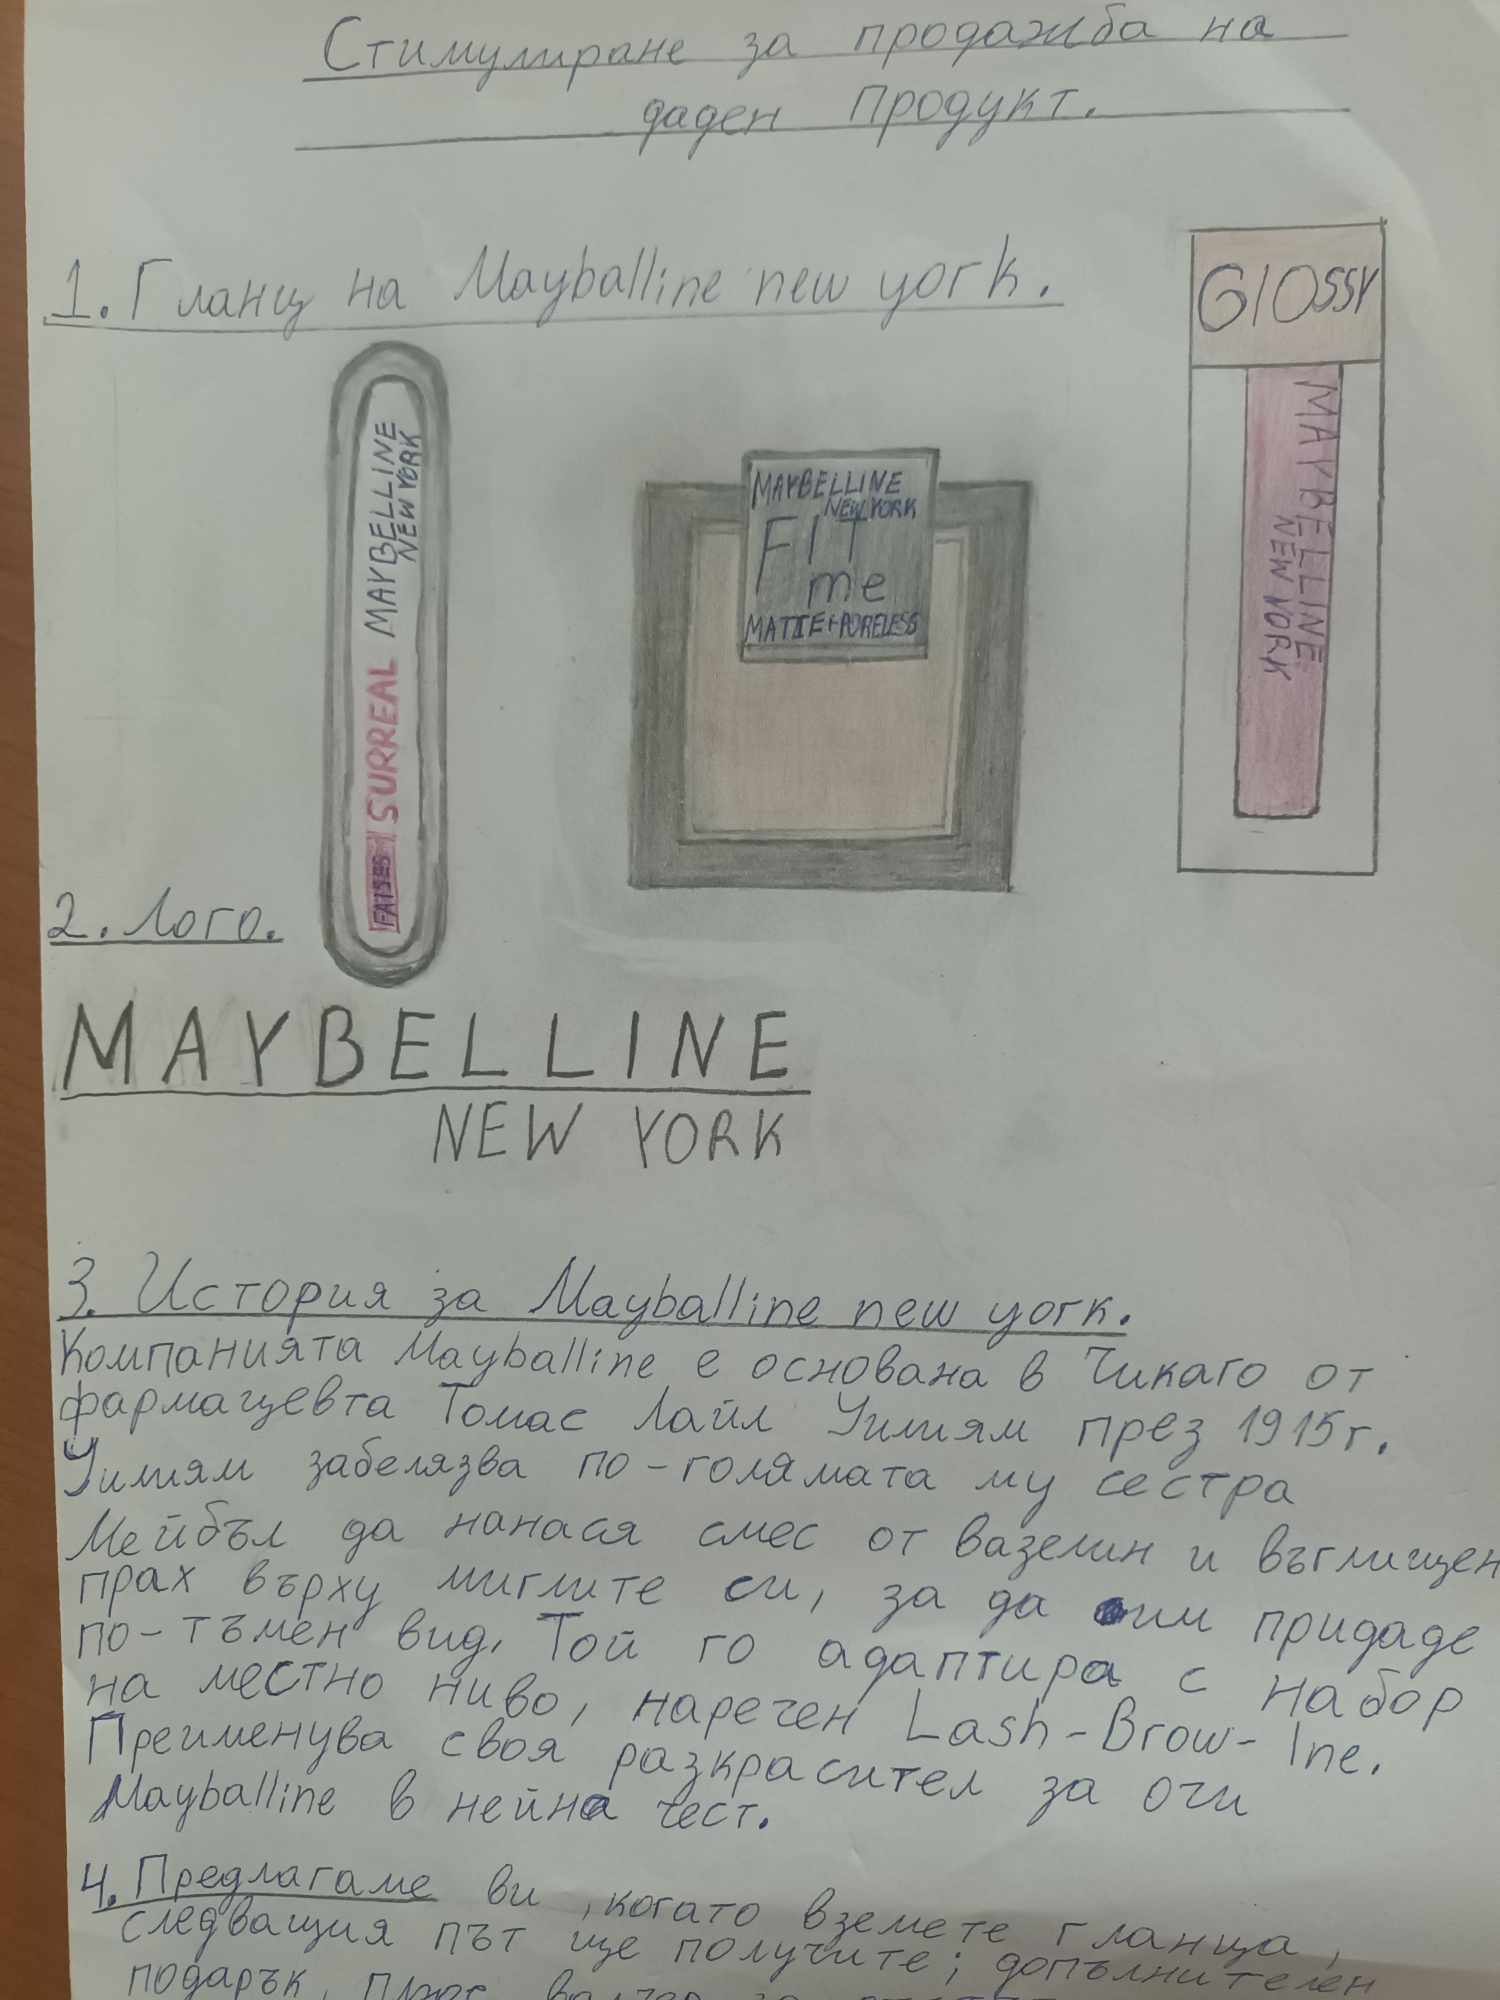 Стимулиране за продажба на
даден продукт.
1. Гланц на Mayballine new york.
GlOSSY
MAYBELLINE
NEW YORK
FALSES SURREAL MAYBELLINE
NEW YORK
MAYBELLINE
NEW YORK
FIT
me
MATTE+PORELESS
2. Лого.
MAYBELLINE
NEW YORK
3. История за Mayballine new york.
Компанията Mayballine е основана в Чикаго от
фармацевта Томас Лайл Уилиям през 1915г.
Уилиям забелязва по-голямата му сестра
Мейбъл да нанася смес от вазелин и въглищен
прах върху миглите си, за да им придаде
по-тъмен вид. Той го адаптира с набор
на местно ниво, наречен Lash-Brow-Ine.
Преименува своя разкрасител за очи
Mayballine в нейна чест.
4. Предлагаме ви, когато вземете гланца,
следващия път ще получите; допълнителен
подарък, плюс